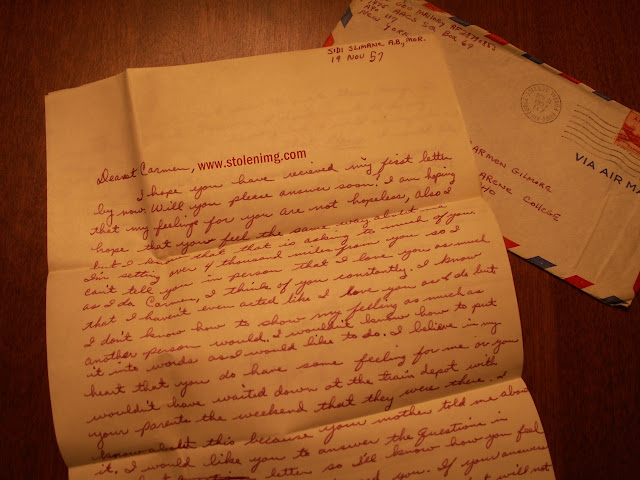 SIDI SLIMANE A.B., MOR.
19 NOV 57
Dearest Carmen,
www.stolenimg.com
I hope you have recieved my first letter
by now. Will you please answer soon! I am hoping
that my feelings for you are not hopeless, also I
hope that you feel the same way about me
but I know that that is asking to much of you.
I'm setting over 4 thousand miles from you so I
can't tell you in person that I love you as much
as I do. Carmen, I think of you constantly. I know
that I haven't even acted like I love you as I do but
I don't know how to show my feeling as much as
another person would. I wouldn't know how to put
it into words as I would like to do. I believe in my
heart that you do have some feeling for me or you
wouldn't have waited down at the train depot with
your parents the weekend that they were there. I
know about this because your mother told me about
it. I would like you to answer the questions in
letter so I'll know how you feel
you. If your answers
will not
APO 117
NEW YORK
BOX 69
ARMEN GILMORE
ARENE COLLEGE
HO
VIA AIR MA